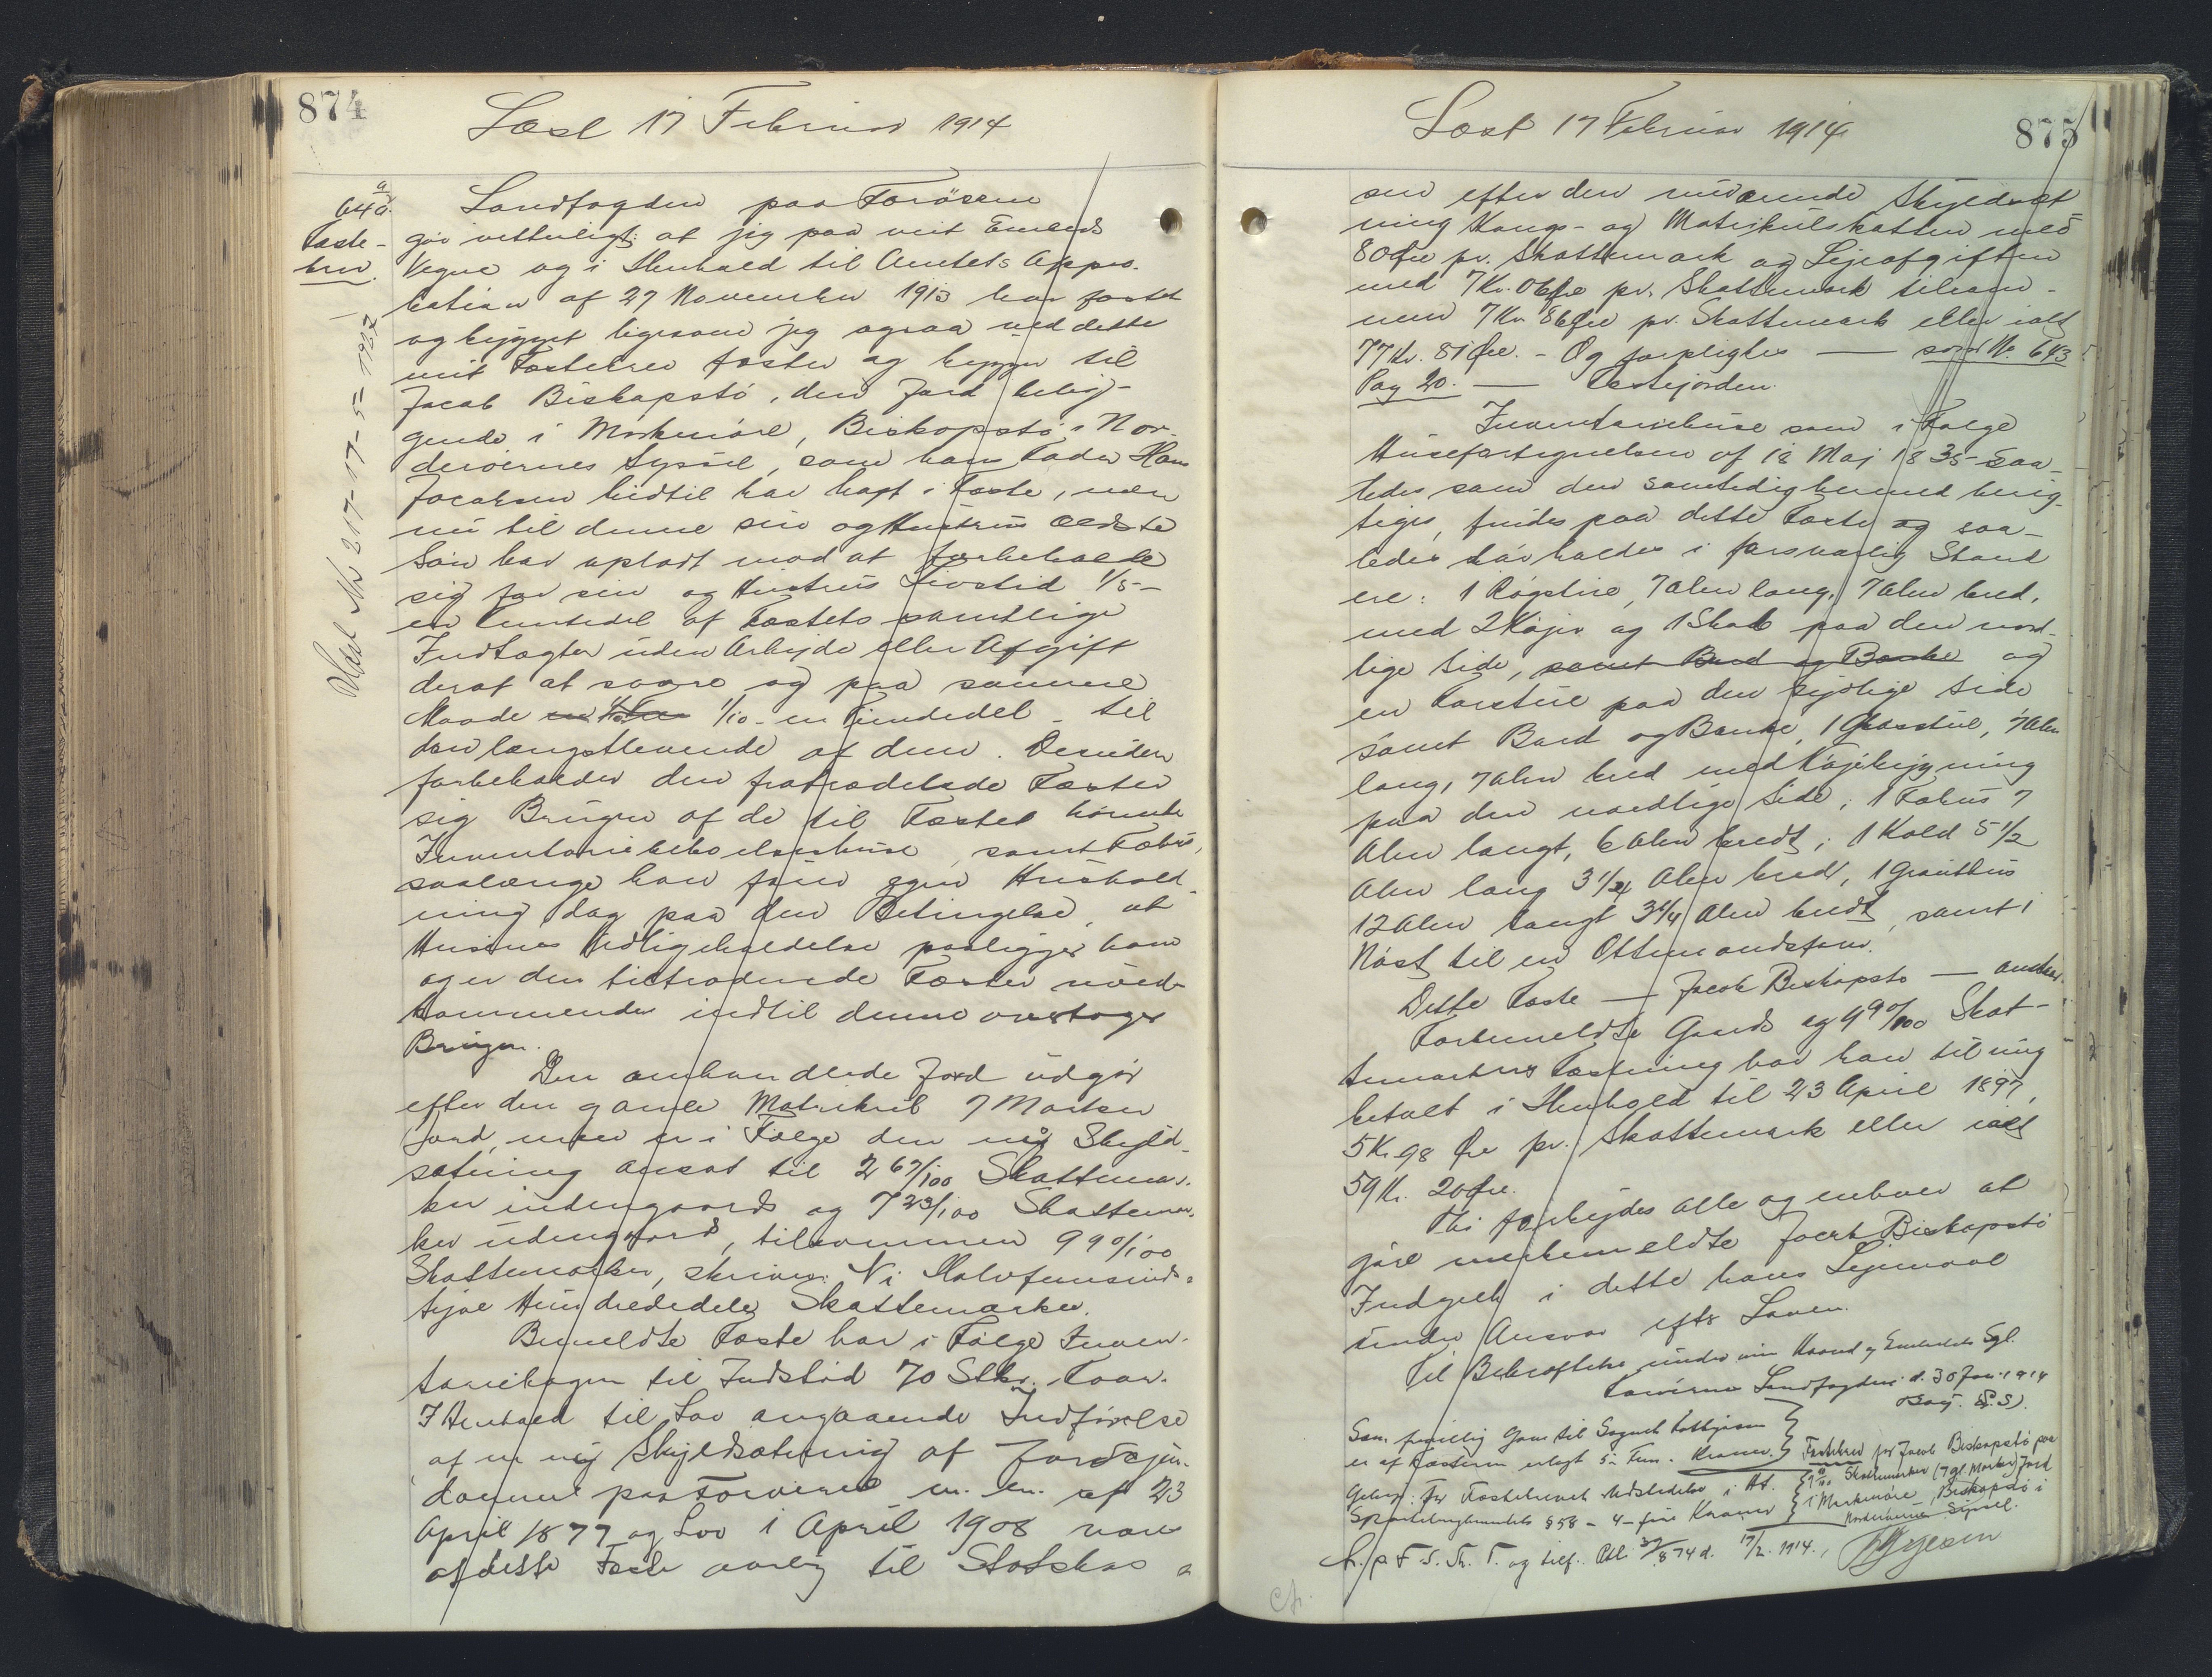 874
Læst 17 Februar 1914
64 a
Fæste-
brev.
Slet. Nr 217-17-5-1922
Landfogden paa Færöerne
gör vitterligt: at jeg paa mit Embeds
Vegne og i Henhold til Amtets Appro-
bation af 27 November 1913 har fæstet
og bygget ligesom jeg ogsaa ved dette
mit Fæstebrev fæster og bygger til
Jacob Biskopstö, den Jord belig-
gende i Markmöre, Biskopstö i Nor-
deröernes Syssel, som hans Fader Hans
Jacobsen hidtil har haft i Fæste, men
nu til denne sin og Hustrus ældste
Sön har opladt mod at forbeholde
sig for sin og Hustrus Livstid 1/5-
en Femtedel af Fæstets samtlige
Indtægter uden Arbejde eller Afgift
deraf at svare og paa samme
Maade 1/10 - en Tiendedel - til
den længstlevende af dem. Desuden
forbeholder den fratrædelde Fæster
sig Brugen af de til Fæstet hörende
Inventariebeboelseshuse, samt Fæhus,
saalænge han förer egen Hushold-
ning dog paa den Betingelse, at
Husenes Vedligeholdelse paaligger ham
og er den tiltrædende Fæster uved-
kommende indtil denne overtager
Brugen.
Den omhandlede Jord udgör
efter den gamle Matrikul 7 Marker
Jord, men er i Fölge den ny Skyld-
sætning ansat til 2 67/100 Skattemar-
ker indengaards og 7 23/100 Skattemar-
ker udengaards, tilsammen 9 90/100
Skattemarker, skriver: Ni Halvfemsinds-
tyve Hundrededele Skattemarker.
Bemeldte Fæste har i Fölge Inven-
tariebogen til Indstöd 70 Stkr. Faar.
I Henhold til Lov angaaende Indförelse
af en ny Skyldsætning af Jordejen-
domme paa Færöerne m. m. af 23
April 1897 og Lov 1 April 1908 svares
af dette Fæste aarlig til Statskas
875
Læst 17 Februar 1914
sen efter den nuværende Skyldsæt
ning Kongs- og Matrikulskatten med
80 Öre pr. Skattemark og Lejeafgiften
med 7 Kr. 06 Öre pr. Skattemark tilsam-
men 7 Kr 86 Öre pr. Skattemark eller ialt
77 Kr. 81 Öre. - Og forpligtes — som Nr. 643
Pag 20. — Fæstejorden.
Inventariehuse som i Fölge
Husefortegnelsen af 18 Maj 1835 saa-
ledes som den samtidig hermed berig-
tiges, findes paa dette Fæste og saa-
ledes bör holdes i forsvarlig Stand
ere: 1 Rögstue, 7 Alen lang, 7 Alen bred,
med 2 Köjer og 1 Skab paa den nord-
lige Side, samt Bord og Bænke og
en Forstue paa den sydlige Side
samt Bord og Bænke, 1 Glasstue, 7 Alen
lang, 7 Alen bred med Köjebygning
paa den nordlige Side; 1 Fæhus 7
Alen langt, 6 Alen bredt; 1 Hold 5 1/2
Alen lang 3 1/4 Alen bredt, 1 Grauthus
12 Alen langt 3 1/4 Alen bredt, samt 1
Nöst til en Ottemandsfarer.
Dette Fæste — Jacob Biskopstö —
Forbemeldte Gaards og 9 90/100 Skat-
temarkers Fæstning har han til mig
betalt i Henhold til 23 April 1897,
5 Kr. 98 Öre pr. Skattemark eller ialt
59 Kr. 20 Öre.
Thi forbydes alle og enhver at
göre merbemeldte Jacob Biskopstö
Indgreb i dette hans Lejemaal
under Ansvar efter Loven.
Til Bekræftelse under min Haand og Embedets Segl.
Færöernes Landfogderi d. 30 Jan. 1914
(L.S).
Som frivillig Gave til Sognets Fattigkasse
er af Fæsteren erlagt 5 - Fem - Kroner.
Gebyr: For Fæstebrevets Udstedelse i Hd.
Sportelreglementets § 58 - 4 - fire Kroner
Fæstebrev for Jacob Biskopstö paa
9 90/100 Skattemarker (7 gl. Marker) Jord
i Markmöre, Biskopstö i
Norderöernes Syssel.
17/2. 1914.